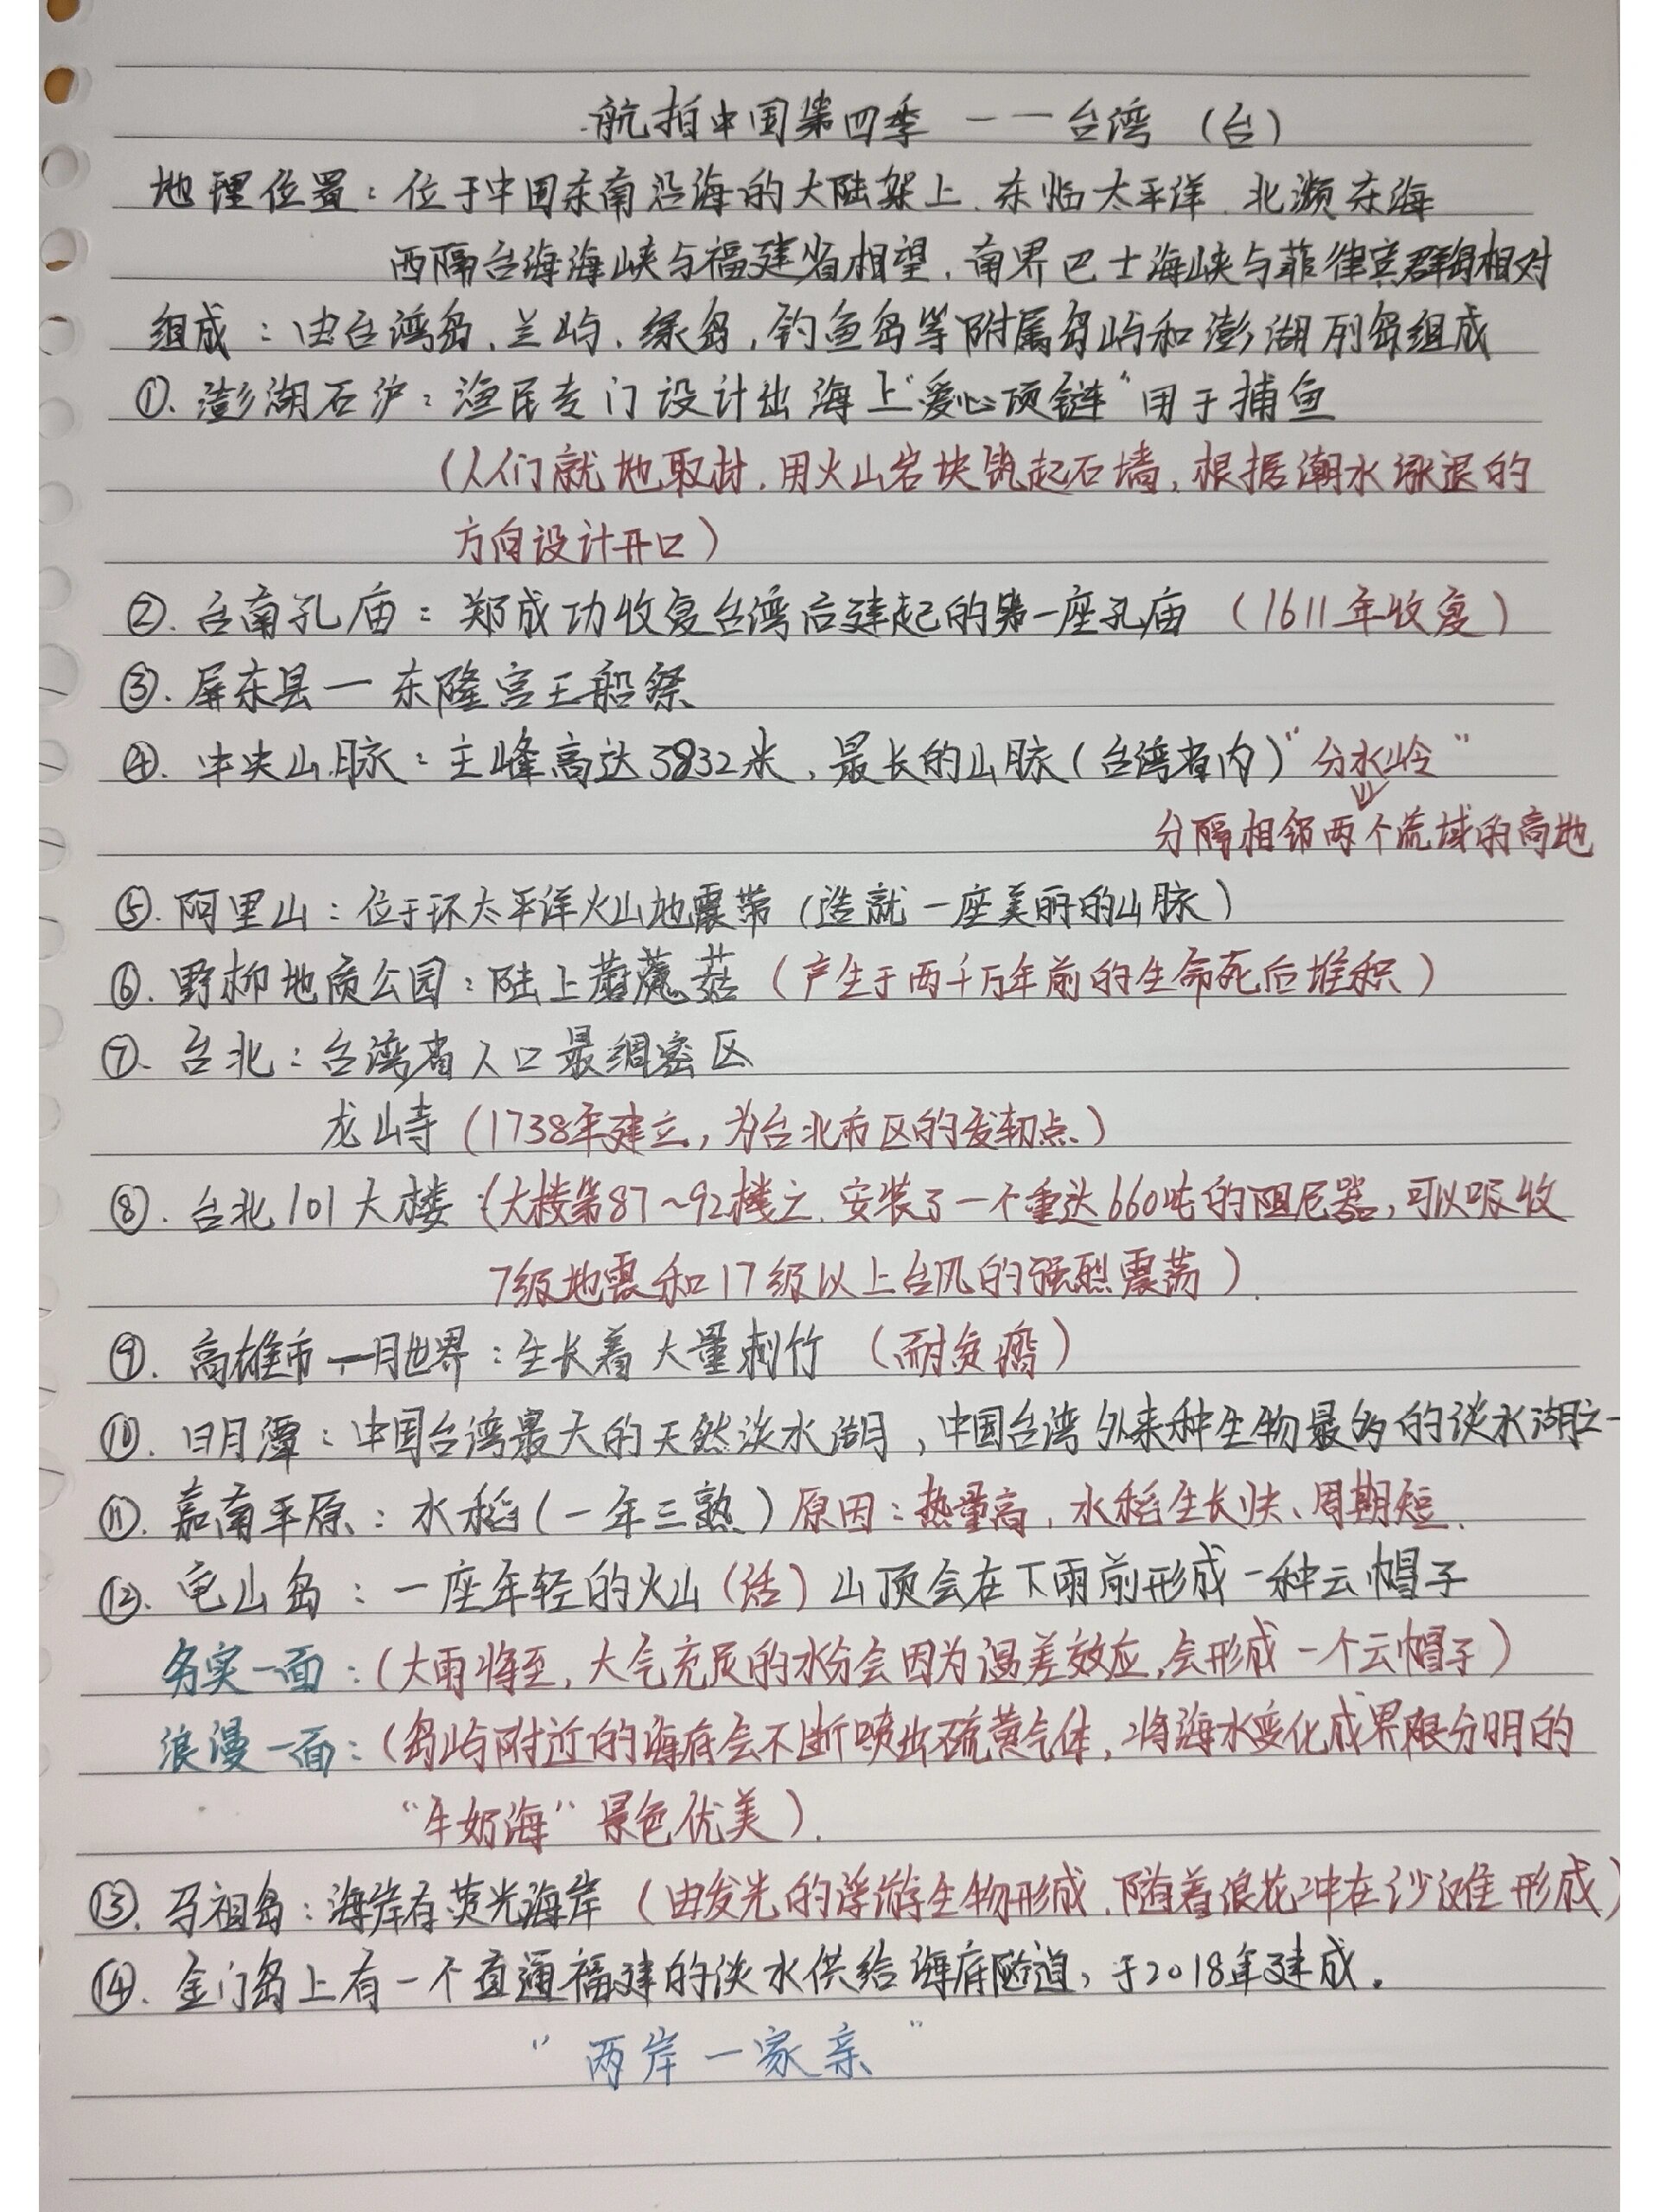 航拍中国第四季 一一台湾 (台)
地理位置:位于中国东南沿海的大陆架上、东临太平洋、北濒东海
西隔台海海峡与福建省相望,南界巴士海峡与菲律宾群岛相对
组成:由台湾岛、兰屿、绿岛,钓鱼岛等附属岛屿和澎湖列岛组成
①、澎湖石沪:渔民专门设计出海上“爱心项链”用于捕鱼
(人们就地取材,用火山岩块筑起石墙,根据潮水涨退的
方向设计开口)
②、台南孔庙:郑成功收复台湾后建起的第一座孔庙 (1611年收复)
③、屏东县一 东隆宫王船祭
④、中央山脉:主峰高达3832米,最长的山脉(台湾省内)“分水岭”
分隔相邻两个流域的高地
⑤、阿里山:位于环太平洋火山地震带(造就一座美丽的山脉)
⑥、野柳地质公园:陆上蘑菇 (产生于两千万年前的生命死后堆积)
⑦、台北:台湾省人口最绸密区
龙山寺(1738年建立,为台北市区的发轫点)
⑧、台北101大楼(大楼第87~92楼之、安装了一个重达660吨的阻尼器,可以吸收
7级地震和17级以上台风的强烈震荡).
⑨、高雄市一月世界:生长着大量刺竹 (耐贫瘠)
⑩、日月潭:中国台湾最大的天然淡水湖,中国台湾外来种生物最多的淡水湖之一
⑪、嘉南平原:水稻(一年三熟)原因:热量高,水稻生长快、周期短.
⑫、龟山岛:一座年轻的火山(活)山顶会在下雨前形成一种云帽子
务实一面:(大雨将至,大气充足的水分会因为温差效应,会形成一个云帽子)
浪漫一面:(岛屿附近的海底会不断喷出硫黄气体,将海水变化成界限分明的
“牛奶海”景色优美).
⑬、马祖岛:海岸有荧光海岸 (由发光的浮游生物形成、随着浪花冲在沙滩形成)
⑭、金门岛上有一个直通福建的淡水供给海底隧道,于2018年建成。
“两岸一家亲”